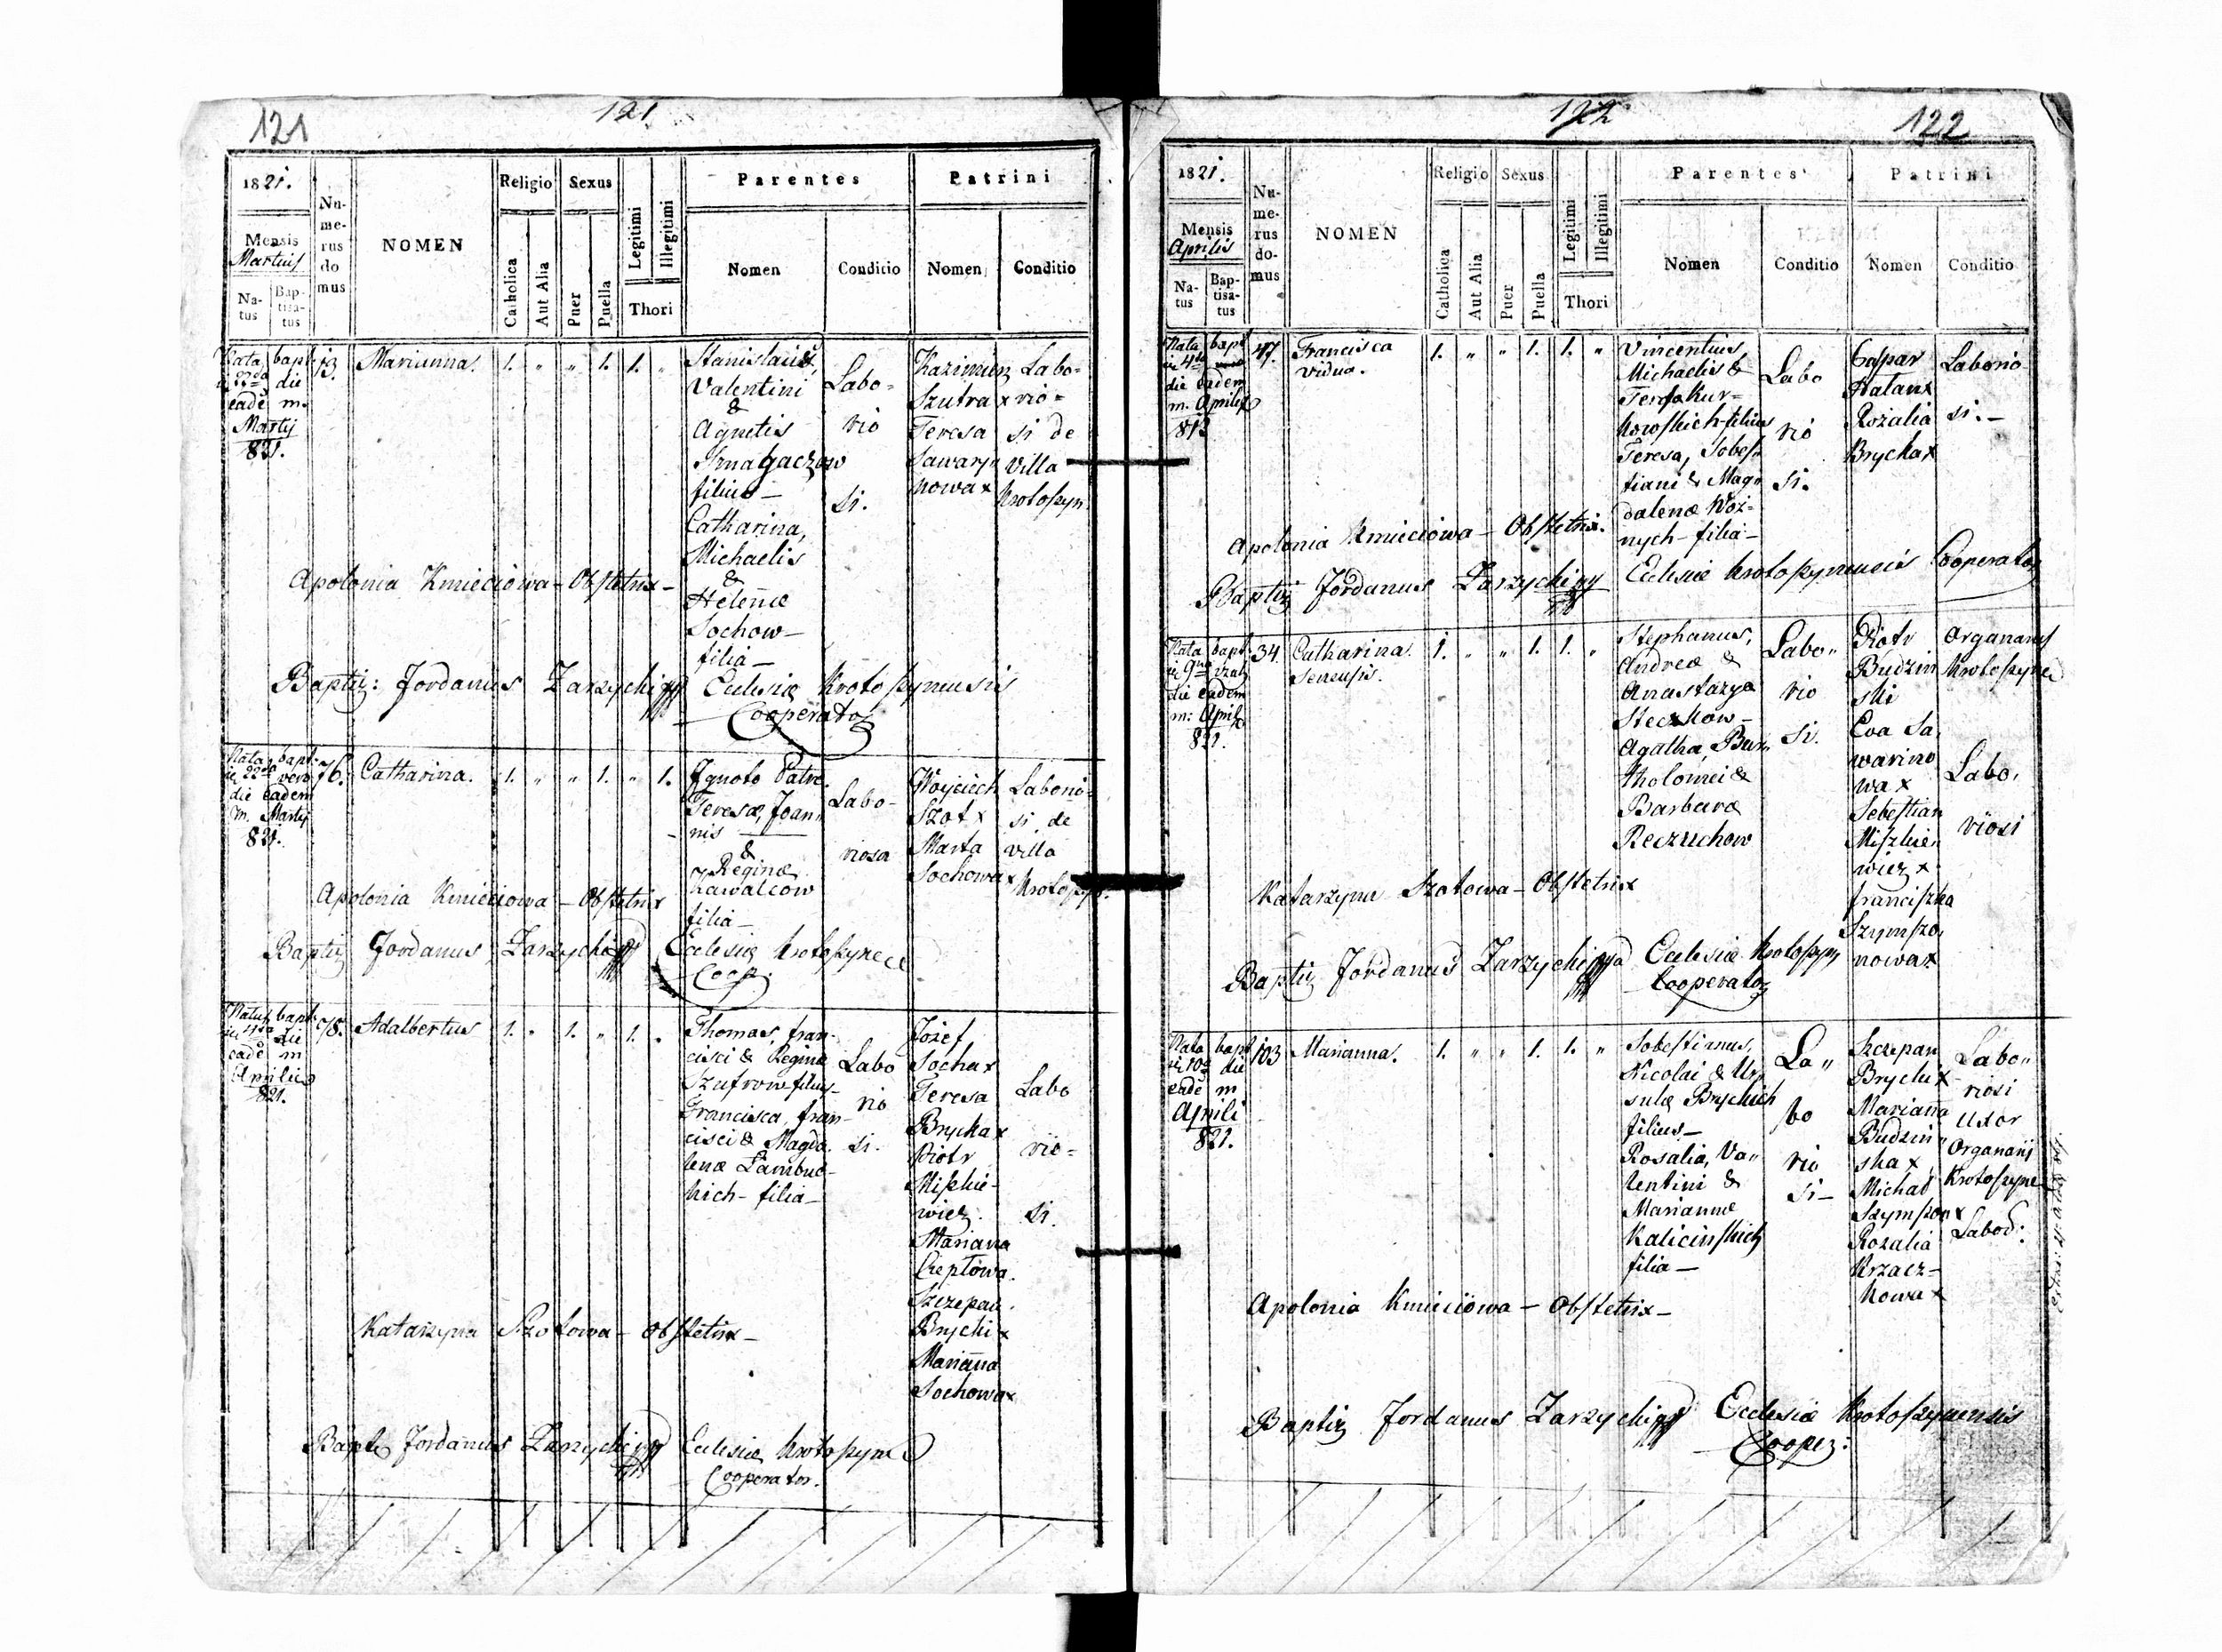 121
121
1821.
Mensis
Martius
Na-
tus
Bap-
tisa-
tus
Nu-
me-
rus
do
mus
NOMEN
Religio
Catholica
Aut Alia
Sexus
Puer
Puella
Legitimi
Illegitimi
Thori
Parentes
Nomen
Conditio
Patrini
Nomen
Conditio
Nata bapt:
die
eadē m.
Martij
821.
73.
Marianna.
1. „ „ 1. 1. „
Stanislaus,
Valentini
&
Agnetis
filius —
Catharina,
Michaelis
&
Helenæ
Sochow —
filia —
Labo-
rio
si.
Kazimierz
Szutra x
Teresa
Sawary
nowa x
Labo-
rio-
si de
villa
Krotoszyn
Apolonia Kmieciowa — Obstetrix —
Baptiz: Jordanus Zarzychi Ecclesiæ Krotoszynensis
Cooperator
Nata bapt:
in 22da vero
die eadem
m. Martij
821.
76.
Catharina.
1. „ „ 1. „ 1.
Ignoto Patre.
Teresæ, Joan-
nis
&
Reginæ
Kawalcow
filia —
Labo-
riosa
Woyciech
Szot x
Marta
Sochowa x
Laborio-
si de
villa
Krotoszyn.
Apolonia Kmieciowa — Obstetrix
Baptiz Jordanus Zarzychi Ecclesiæ Krotoszynen
Coop.
Natus bapt:
die
eadē m
Aprilis
821.
78.
Adalbertus
1. „ 1. „ 1. „
Thomas, fran-
cisci & Regina
Szufrow filius —
Francisca, fran-
cisci & Magda-
lenæ Lambuc-
kich — filia —
Labo
rio
si.
Jozef
Socha x
Teresa
Brycka x
Piotr
Miszkie-
wicz.
Marianna
Cieptowa.
Szczepan
Brychi x
Marianna
Sochowa x
Labo
rio-
si.
Katarzyna Szotowa — Obstetrix —
Bapt Jordanus Zarzychi Ecclesiæ Krotoszyne
Cooperator.
122
122
1821.
Mensis
Aprilis
Na-
tus
Bap-
tisa-
tus
Nu-
me-
rus
do-
mus
NOMEN
Religio
Catholica
Aut Alia
Sexus
Puer
Puella
Legitimi
Illegitimi
Thori
Parentes
Nomen
Conditio
Patrini
Nomen
Conditio
Nata bapt
in 4ta
die eadem
m. Aprilis
47.
Francisca
Vidua.
1. „ „ 1. 1. „
Vincentius,
Michaelis &
kowskich filius
Teresa, Sobes-
tiani & Mag-
dalenæ Woz-
nych — filia —
Labo
rio
si.
Gaspar
Ratanx
Rozalia
Brychax
Laborio
si. —
Apolonia Kmieciowa — Obstetrix.
Baptiz Jordanus Zarzychi Eclesiæ Krotoszynensis Cooperator
Nata bapt
in 9na
die eadem
m: April
821.
34.
Catharina.
Senensis.
1. „ „ 1. 1. „
Stephanus,
Andreæ &
Anastazyæ
Steczkow —
Agatha, Bar-
tholomei &
Barbaræ
Reczuchow
Labo„
rio
si.
Piotr
Budzin
ski
Eva Sa,
warino
wa x
Sebestian
Miszkie-
wicz x
franciszka
Szymszo,
nowa x
Organarij
Krotoszyne
Labo,
riosi
Katarzyna Szotowa — Obstetrix
Baptiz Jordanus Zarzychi Ecclesiæ Krotoszyn
Cooperator
Nata bapt
in 10a die
eadē m
Aprili
821.
103
Marianna.
1. „ „ 1. 1. „
Sobestianus,
Nicolai & Ur-
sulæ Brychich
filius —
Rosalia, Va„
lentini &
Mariannæ
Kalicinskich
filia —
La„
bo
rio
si —
Szczepan
Brychi x
Marianna
Budzin„
ska x
Michał
Szymszon x
Rozalia
Krzacz-
kowa x
Labo„
riosi
Uxor
Organarij
Krotoszyne
Labor:
Apolonia Kmieciowa — Obstetrix —
Baptiz Jordanus Zarzychi Ecclesiæ Krotoszynensis
Cooper: